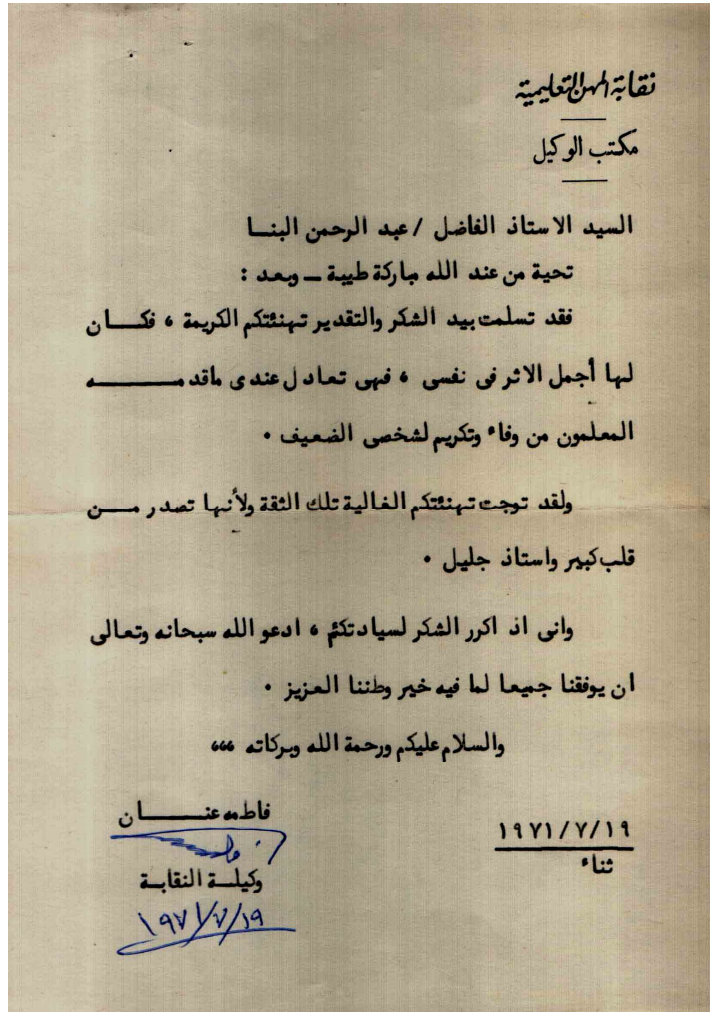 نقابة المهن التعليمية
مكتب الوكيل
السيد الاستاذ الفاضل / عبد الرحمن البنا
تحية من عند الله مباركة طيبة ـ وبعد :
فقد تسلمت بيد الشكر والتقدير تهنئتكم الكريمة ، فكان
لها أجمل الاثر فى نفسى ، فهى تعادل عندى ماقدمه
المعلمون من وفاء وتكريم لشخصى الضعيف ٠
ولقد توجت تهنئتكم الغالية تلك الثقة ولأنها تصدر من
قلب كبير واستاذ جليل ٠
وانى اذ اكرر الشكر لسيادتكم ، ادعو الله سبحانه وتعالى
ان يوفقنا جميعا لما فيه خير وطننا العزيز ٠
والسلام عليكم ورحمة الله وبركاته ،،،
فاطمه عنان
وكيلة النقابة
١٩٧١/٧/١٩
١٩٧١/٧/١٩
ثناء